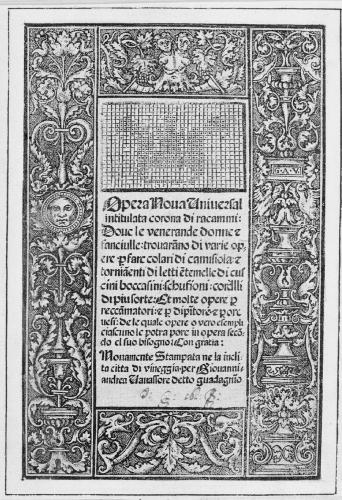 Opera Nova Universal
intitulata corona di racammi:
Doue le venerande donne e
fanciulle: trouarãno di varie op̃
ere p̱ fare colari di camisiola: e
torniãenti di letti ẽtemelle di cus
cini boccasini: schufioni: cordlli
di piu sorte: Et molte opere p̱
reccãmatori: e p̱ dipĩtore: e por
uesi: de le quale opere o vero esempli
ciascuno le potra pore in opera secõ
do el suo bisogno: Con gratia:
Nouamente Stampata ne la incli
ta citta di vineggia per Giouanni
andrea Vauassore detto guadagnĩo
G A V